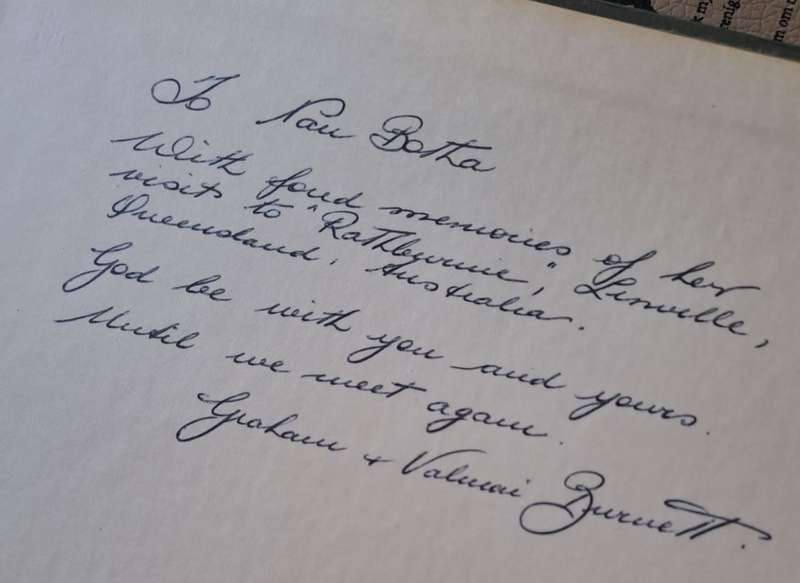 To Nan Botha
With fond memories of her
visits to "Rathburnie", Linville,
Queensland, Australia.
God be with you and yours.
Until we meet again.
Graham & Valmai Burnett.